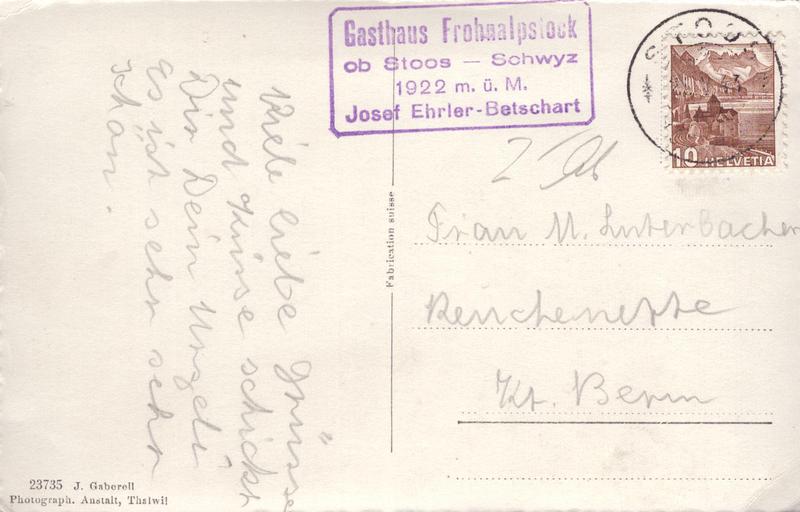 Gasthaus Frohnalpstock
ob Stoos — Schwyz
1922 m. ü. M.
Josef Ehrler-Betschart
STOOS
10 HELVETIA
Viele liebe Grüsse
und Küsse schickt
Dir Dein Urseli
Es ist sehr sehr
schön.
Fabrication suisse
Frau M. Luterbacher
Reuchenette
Kt. Bern
23735 J. Gaberell
Photograph. Anstalt, Thalwil